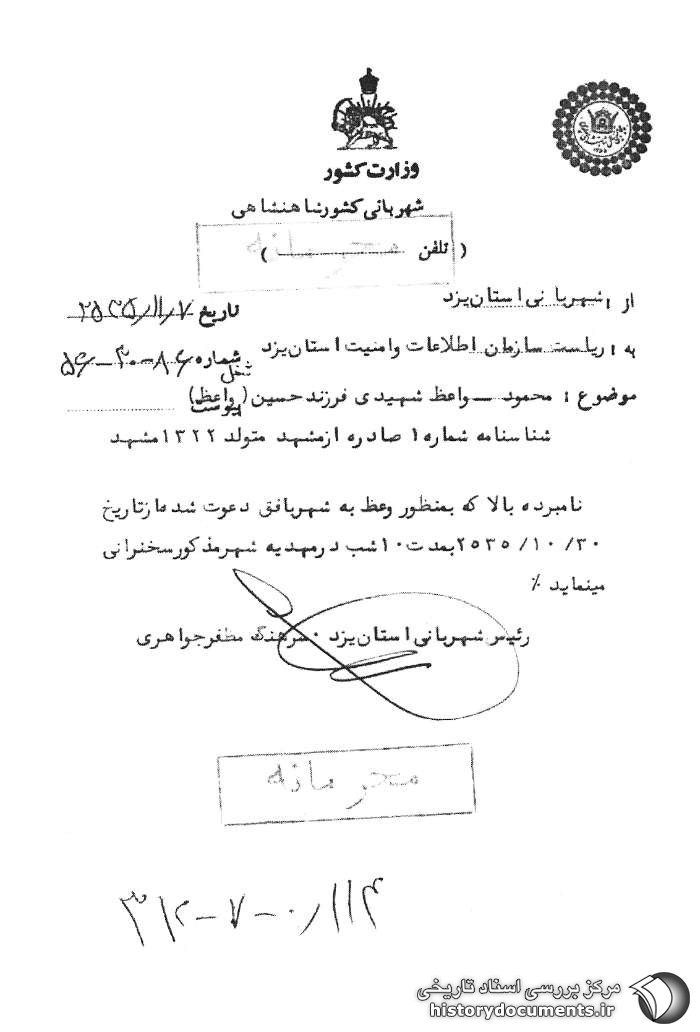 وزارت کشور
شهربانی کشور شاهنشاهی
( تلفن )
محرمانه
از : شهربانی استان یزد
تاریخ ۲۵۳۵/۱۱/۷
به : ریاست سازمان اطلاعات و امنیت استان یزد
شماره
شغل
موضوع : محمود ــ واعظ شهیدی فرزند حسین (واعظ)
پیوست
شناسنامه شماره ۱ صادره از مشهد متولد ۱۳۲۲ مشهد
نامبرده بالا که بمنظور وعظ به شهر بافق دعوت شده از تاریخ
۲۵۳۵/۱۰/۳۰ بمدت ۱۰ شب در مهدیه شهر مذکور سخنرانی
مینماید ٪
رئیس شهربانی استان یزد ۰ سرهنگ مظفر جواهری
محرمانه
مرکز بررسی اسناد تاریخی
historydocuments.ir